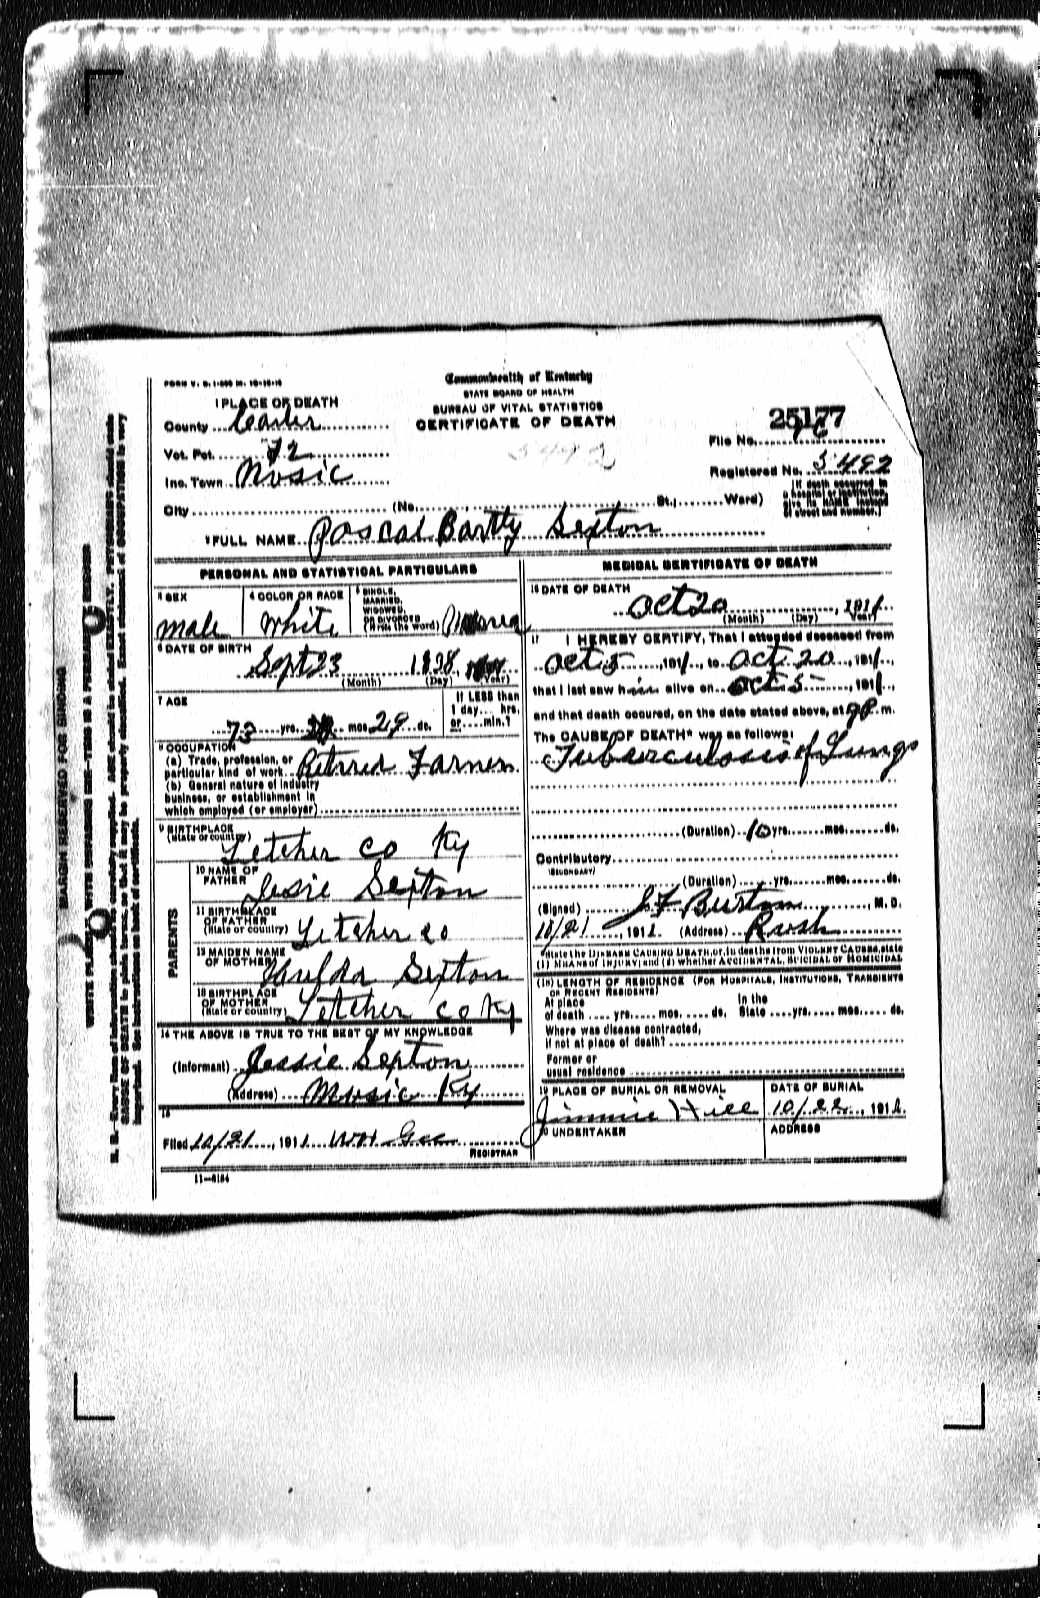 FORM V. S. 1-
Commonwealth of Kentucky
STATE BOARD OF HEALTH
BUREAU OF VITAL STATISTICS
CERTIFICATE OF DEATH
1 PLACE OF DEATH
County Carter
Vot. Pct. 12
Inc. Town Music
City (No. St.; Ward)
25177
File No.
Registered No. 5492
5492
[If death occurred in
a hospital or institution,
give its NAME instead
of street and number.]
2 FULL NAME Pascal Bartly Sexton
PERSONAL AND STATISTICAL PARTICULARS
3 SEX
male
4 COLOR OR RACE
White
5 SINGLE,
MARRIED,
WIDOWED,
OR DIVORCED
(Write the word)
6 DATE OF BIRTH
Sept 23 1838
(Month) (Day) (Year)
7 AGE
73 yrs. mos. 29 ds.
If LESS than
1 day... hrs.
or... min.?
8 OCCUPATION
(a) Trade, profession, or
particular kind of work Retired Farmer
(b) General nature of industry
business, or establishment in
which employed (or employer)
9 BIRTHPLACE
(State or country)
Letcher Co Ky
PARENTS
10 NAME OF
FATHER Jesie Sexton
11 BIRTHPLACE
OF FATHER
(State or country) Letcher Co
12 MAIDEN NAME
OF MOTHER Hulda Sexton
13 BIRTHPLACE
OF MOTHER
(State or country) Letcher Co Ky
14 THE ABOVE IS TRUE TO THE BEST OF MY KNOWLEDGE
(Informant) Jessie Sexton
(Address) Music Ky
15
Filed 10/21, 1911 W H Gee
REGISTRAR
11-
MEDICAL CERTIFICATE OF DEATH
16 DATE OF DEATH
Oct 20, 1911
(Month) (Day) (Year)
17 I HEREBY CERTIFY, That I attended deceased from
Oct 5, 1911, to Oct 20, 1911,
that I last saw him alive on Oct 5, 1911,
and that death occured, on the date stated above, at 9P.m.
The CAUSE OF DEATH* was as follows:
Tuberculosis of Lungs
(Duration) 10 yrs. mos. ds.
Contributory
(SECONDARY)
(Duration) yrs. mos. ds.
(Signed) J F M.D.
10/21, 1911 (Address) Rush
*State the DISEASE CAUSING DEATH, or, in deaths from VIOLENT CAUSES, state
(1) MEANS OF INJURY; and (2) whether ACCIDENTAL, SUICIDAL or HOMICIDAL
18 LENGTH OF RESIDENCE (FOR HOSPITALS, INSTITUTIONS, TRANSIENTS
OR RECENT RESIDENTS)
At place In the
of death yrs. mos. ds. State yrs. mos. ds.
Where was disease contracted,
if not at place of death?
Former or
usual residence
19 PLACE OF BURIAL OR REMOVAL
Jimmie Hill
DATE OF BURIAL
10/22, 1911.
20 UNDERTAKER
ADDRESS
MARGIN RESERVED FOR BINDING
WRITE PLAINLY, WITH UNFADING INK—THIS IS A PERMANENT RECORD
N. B.—Every item of information should be carefully supplied. AGE should be stated EXACTLY. PHYSICIANS should state
CAUSE OF DEATH in plain terms, so that it may be properly classified. Exact statement of OCCUPATION is very
important. See instructions on back of certificate.